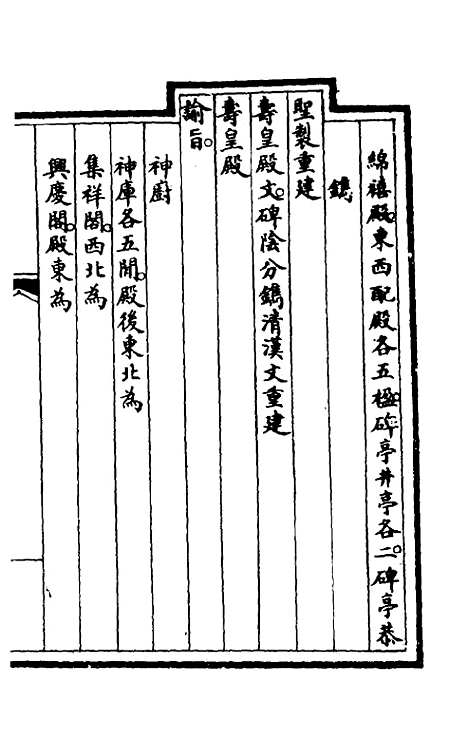 綿禧殿。東西配殿各五楹。碑亭井亭各二。碑亭恭
鐫
聖製重建
壽皇殿文。碑陰分鐫清漢文重建
壽皇殿
諭旨。
神廚
神庫各五間。殿後東北為
集祥閣。西北為
興慶閣。殿東為